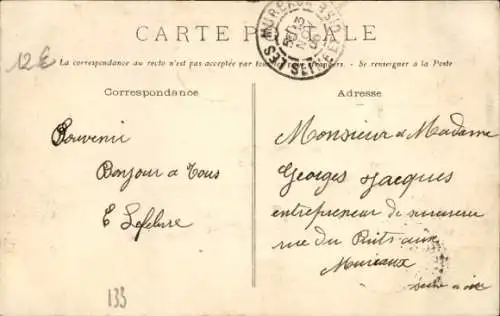 CARTE POSTALE
12 €
La correspondance au recto n'est pas acceptée par tous les pays étrangers. - Se renseigner à la Poste
Correspondance
Adresse
Souvenir
Bonjour a Tous
E Lefebvre
133
Monsieur et Madame
Georges Jacques
entrepreneur de
rue du Puits aux
Mureaux
Seine et Oise